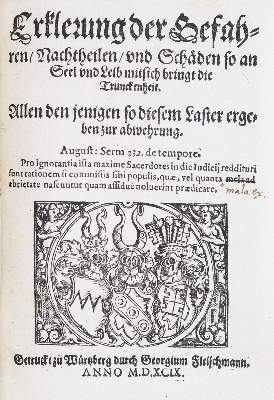 Erklerung der Gefah-
ren/ Nachtheilen/ vnd Schäden so an
Seel vnd Leib mitsich bringt die
Trunckenheit.
Allen den jenigen so diesem Laster erge-
ben zur abwehrung.
August: Serm 232. de tempore.
Pro ignorantia ista maxime Sacerdotes in die Iudicij reddituri
sunt rationem si commissis sibi populis, quæ, vel quanta
ebrietate nascuntur quam assiduè noluerint prædicare. mala ex.
Getruckt zu Würtzberg durch Georgium Fleischmann.
ANNO M.D.XCIX.